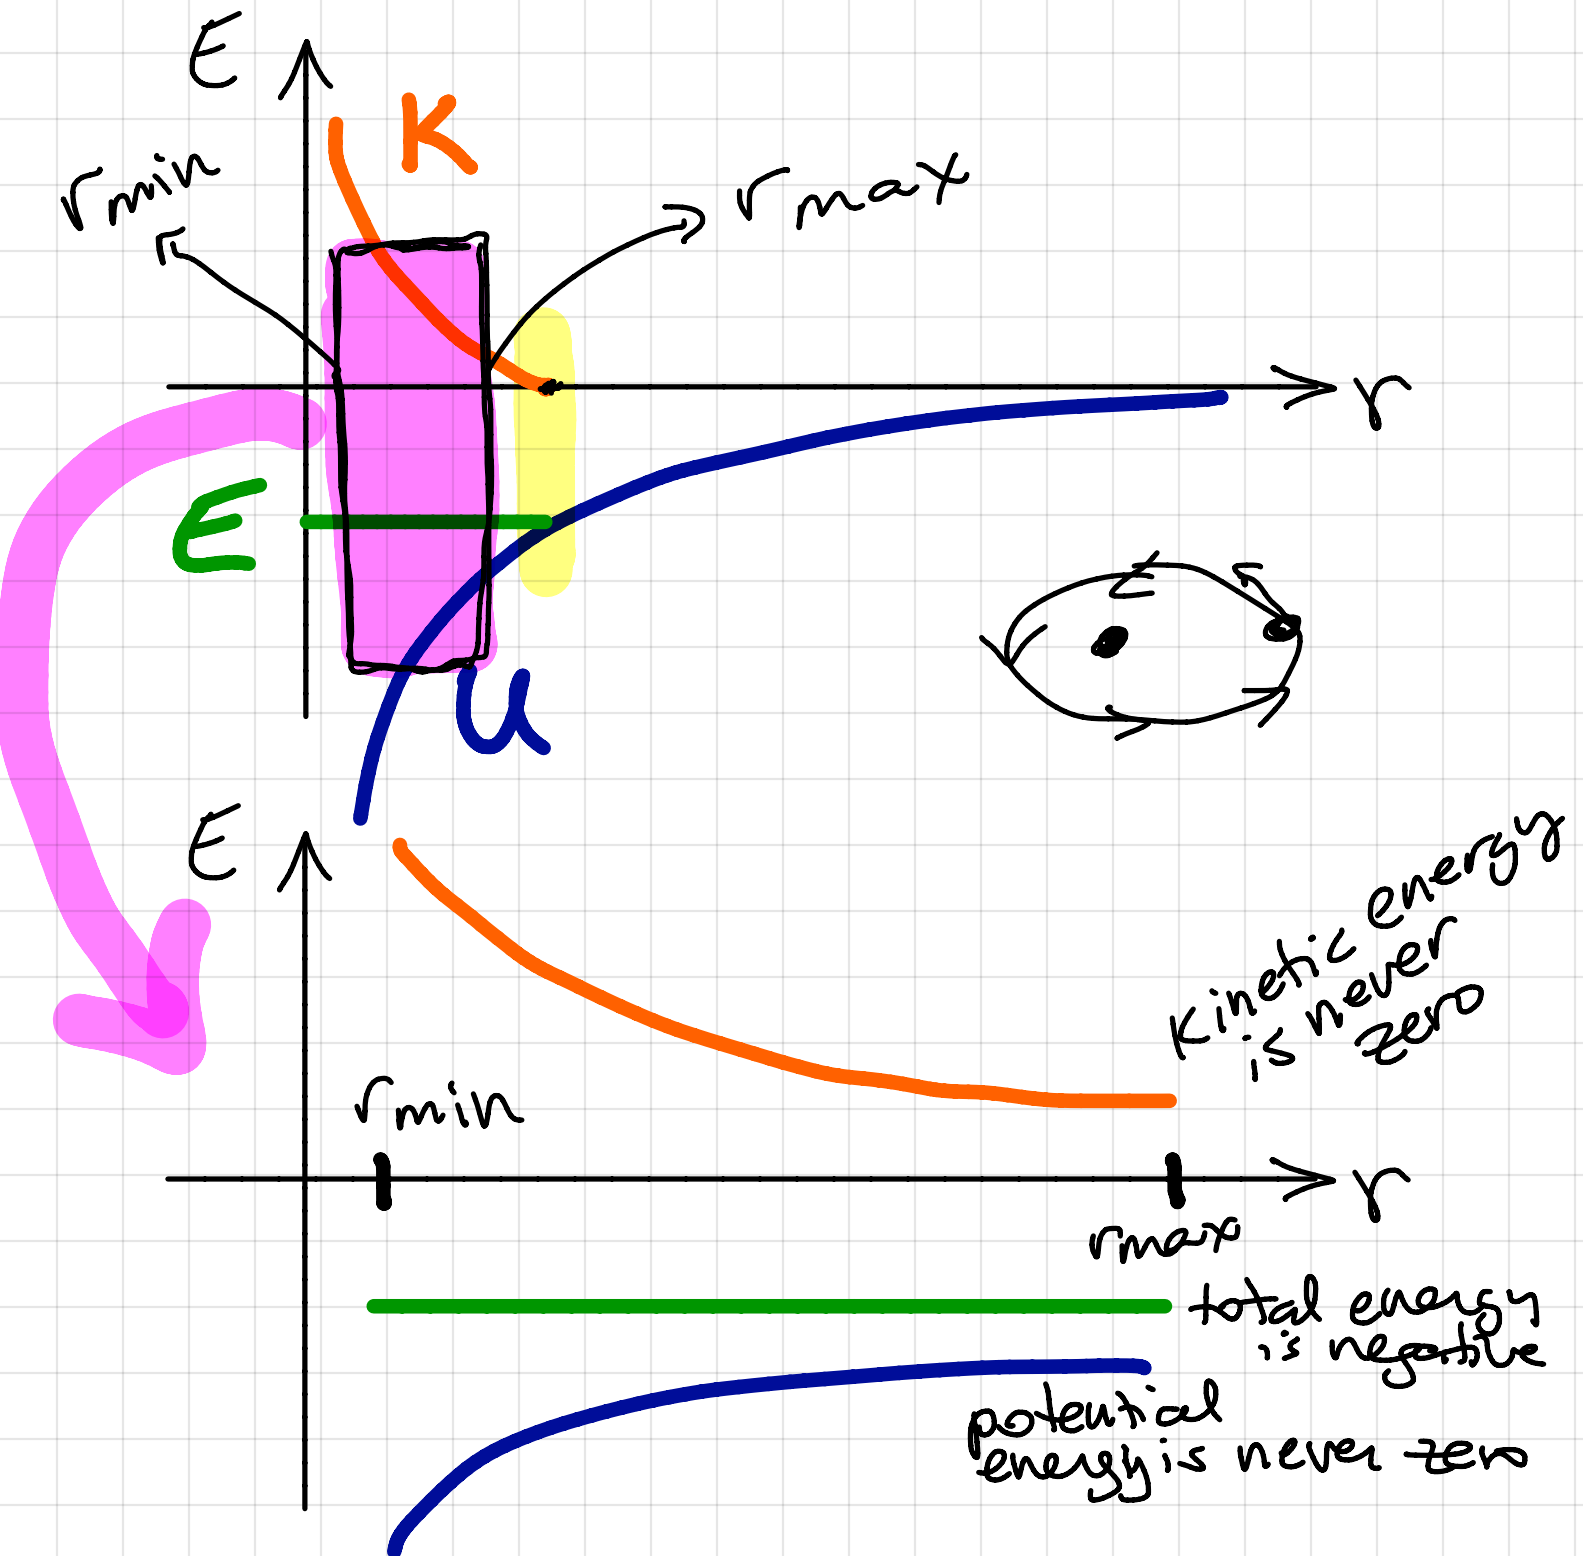 E
K
rmin
rmax
r
E
U
E
Kinetic energy
is never
zero
rmin
r
rmax
total energy
is negative
potential
energy is never zero